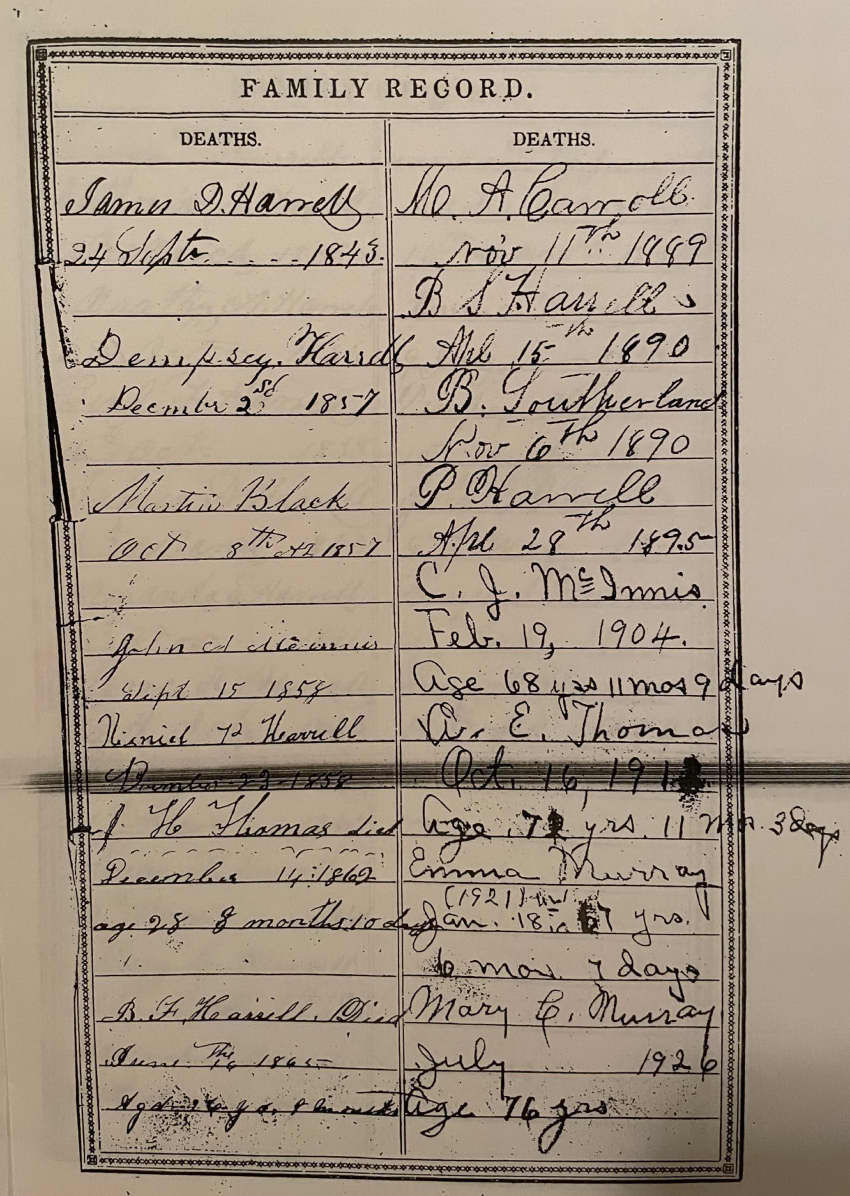 FAMILY RECORD.
DEATHS.
James D. Harrell
24 Sept 1843.
Dempsey Harrell
Decmbr 2nd 1857
Martin Black
Oct 8th 1857
John
Sept 15 1858
Harrell
23 1858
J H Thomas died
December 14: 1862
age 28 8 months 10 days
B. F. Harrell. Died
June 1865
26
DEATHS.
M. A. Carroll
Nov 11th 1889
B S Harrell
Apl 15th 1890
B. Southerland
Nov 6th 1890
P. Harrell
Apl 28th 1895
C. J. McInnis.
Feb. 19, 1904.
Age 68 yrs 11 mos 9 days
A. E. Thomas
Oct. 16, 191
Age 7 yrs. 11 mos. 3 days
Emma Murray
(1921)
Jan. 18 7 yrs.
6 mos. 7 days
Mary C. Murray
July 1926
Age 76 yrs